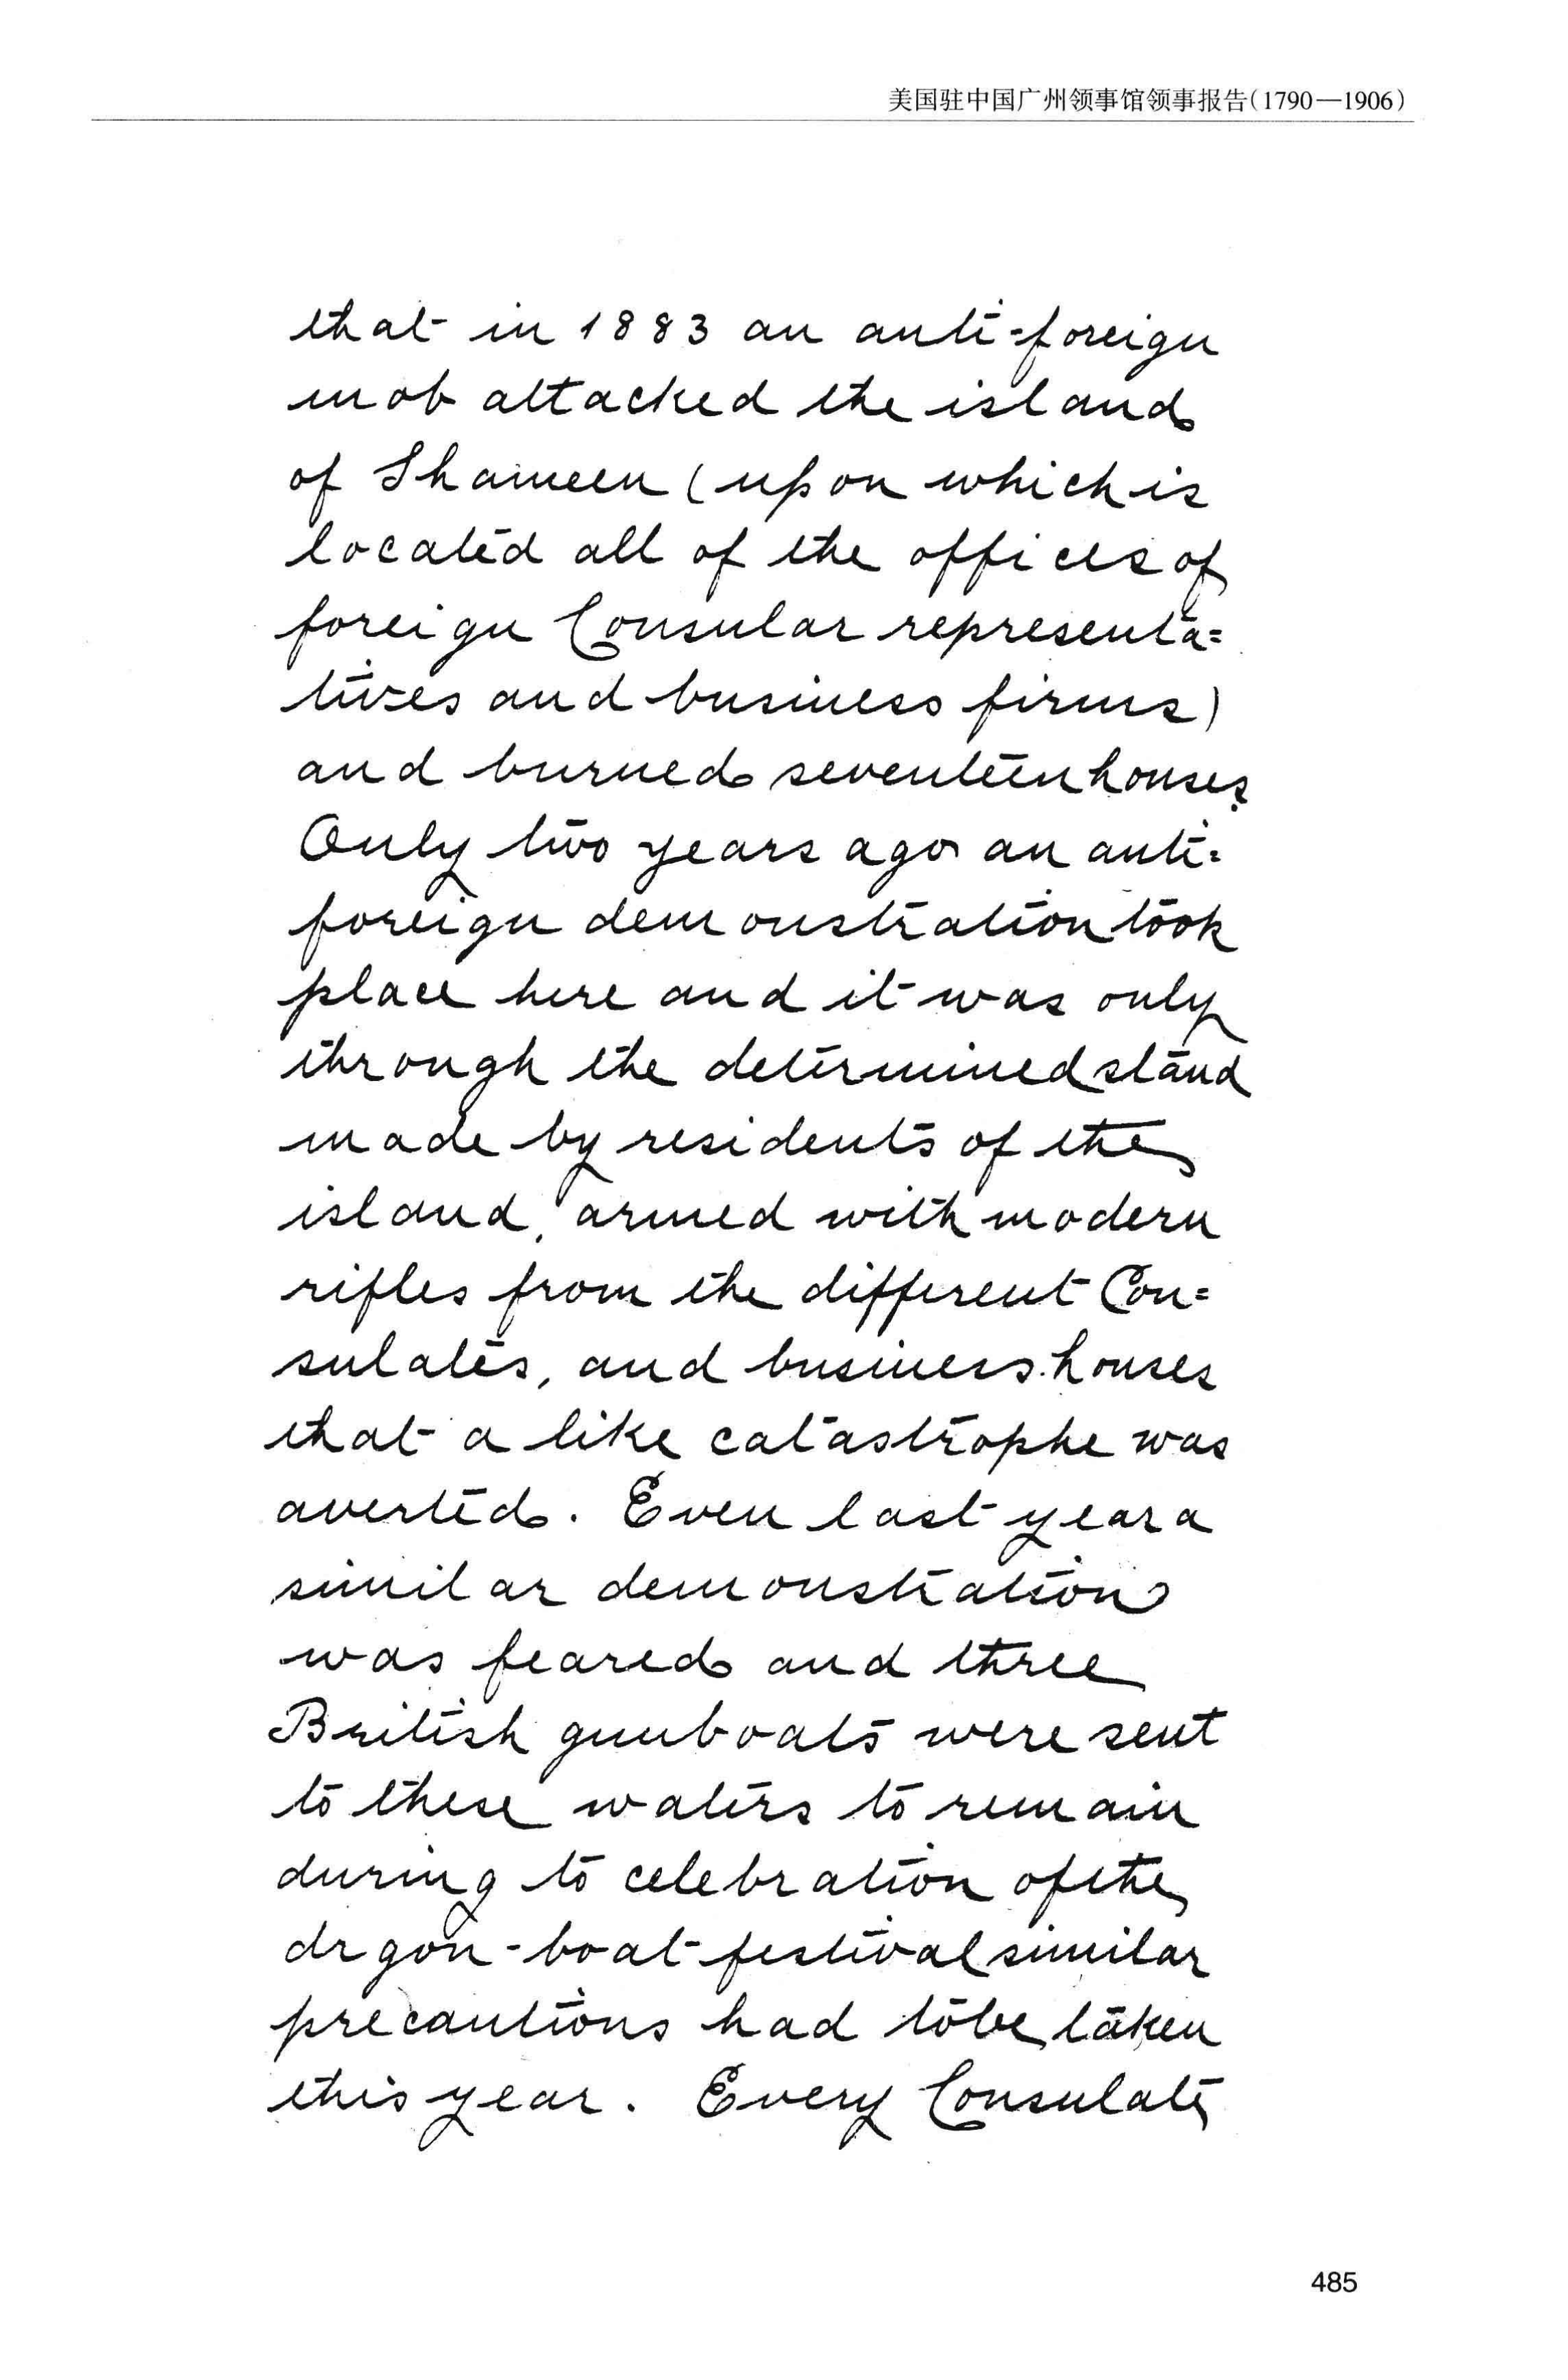 美国驻中国广州领事馆领事报告(1790—1906)
that in 1883 an anti=foreign
mob attacked the island
of Shameen (upon which is
located all of the offices of
foreign Consular representa=
tives and business firms)
and burned seventeen houses.
Only two years ago an anti=
foreign demonstration took
place here and it was only
through the determined stand
made by residents of the
island, armed with modern
rifles from the different Con=
sulates, and business houses
that a like catastrophe was
averted. Even last year a
similar demonstration
was feared and three
British gunboats were sent
to these waters to remain
during to celebration of the
drgon-boat festival similar
precautions had to be taken
this year. Every Consulate
485